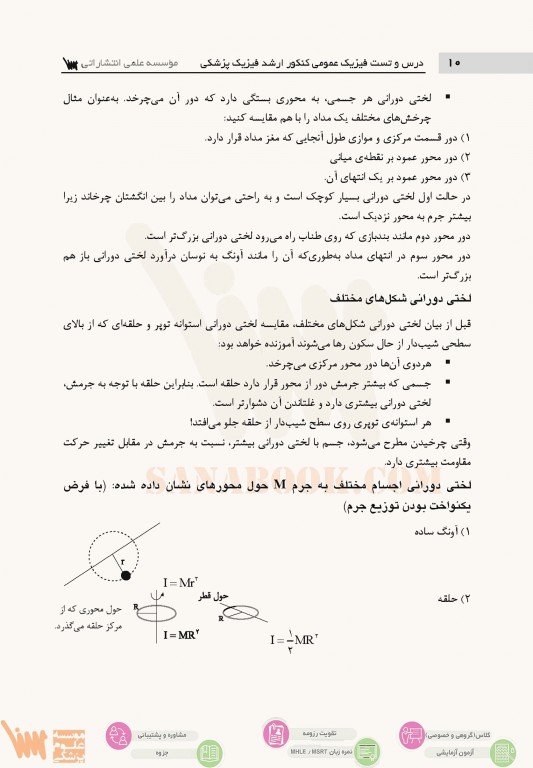 ۱۰
درس و تست فیزیک عمومی کنکور ارشد فیزیک پزشکی
مؤسسه علمی انتشاراتی
▪ لختی دورانی هر جسمی، به محوری بستگی دارد که دور آن می‌چرخد. به‌عنوان مثال
چرخش‌های مختلف یک مداد را با هم مقایسه کنید:
۱) دور قسمت مرکزی و موازی طول آنجایی که مغز مداد قرار دارد.
۲) دور محور عمود بر نقطه‌ی میانی
۳) دور محور عمود بر یک انتهای آن.
در حالت اول لختی دورانی بسیار کوچک است و به راحتی می‌توان مداد را بین انگشتان چرخاند زیرا
بیشتر جرم به محور نزدیک است.
دور محور دوم مانند بندبازی که روی طناب راه می‌رود لختی دورانی بزرگ‌تر است.
دور محور سوم در انتهای مداد به‌طوری‌که آن را مانند آونگ به نوسان درآورد لختی دورانی باز هم
بزرگ‌تر است.
لختی دورانی شکل‌های مختلف
قبل از بیان لختی دورانی شکل‌های مختلف، مقایسه لختی دورانی استوانه توپر و حلقه‌ای که از بالای
سطحی شیب‌دار از حال سکون رها می‌شوند آموزنده خواهد بود:
▪ هردوی آن‌ها دور محور مرکزی می‌چرخد.
▪ جسمی که بیشتر جرمش دور از محور قرار دارد حلقه است. بنابراین حلقه با توجه به جرمش،
لختی دورانی بیشتری دارد و غلتاندن آن دشوارتر است.
▪ هر استوانه‌ی توپری روی سطح شیب‌دار از حلقه جلو می‌افتد!
وقتی چرخیدن مطرح می‌شود، جسم با لختی دورانی بیشتر، نسبت به جرمش در مقابل تغییر حرکت
مقاومت بیشتری دارد.
SANABOOK.COM
لختی دورانی اجسام مختلف به جرم M حول محورهای نشان داده شده: (با فرض
یکنواخت بودن توزیع جرم)
۱) آونگ ساده
r
I = Mr۲
۲) حلقه
حول قطر
R
I = ۱/۲ MR۲
R
I = MR۲
حول محوری که از
مرکز حلقه می‌گذرد.
کلاس(گروهی و خصوصی)
آزمون آزمایشی
تقویت رزومه
نمره زبان MHLE / MSRT
مشاوره و پشتیبانی
جزوه